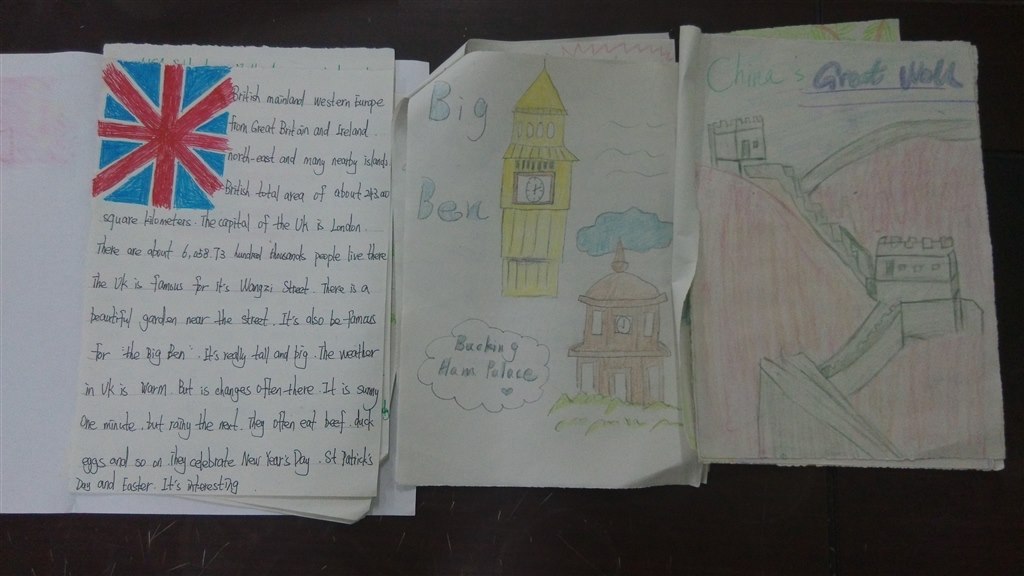 British mainland western Europe
from Great Britain and Ireland
north-east and many nearby islands
British total area of about 243.00
square kilometers. The capital of the Uk is London
There are about 6,038.73 hundred thousands people live there
The Uk is famous for it's Wangzi Street. There is a
beautiful garden near the street. It's also be famous
for "the Big Ben". It's really tall and big. The weather
in Uk is warm. But is changes often there. It is sunny
one minute, but rainy the next. They often eat beef, duck
eggs and so on. They celebrate New Year's Day. St Patrick's
Day and Easter. It's interesting
Big
Ben
Bucking
Ham Palace
China's Great Wall